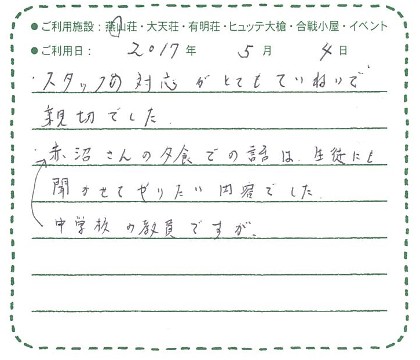 ●ご利用施設：燕山荘・大天荘・有明荘・ヒュッテ大槍・合戦小屋・イベント
●ご利用日： 2017 年 5 月 4 日
・スタッフの対応がとてもていねいで
親切でした。
・赤沼さんの夕食での話は、生徒にも
聞かせてやりたい内容でした。
中学校の教員ですが。